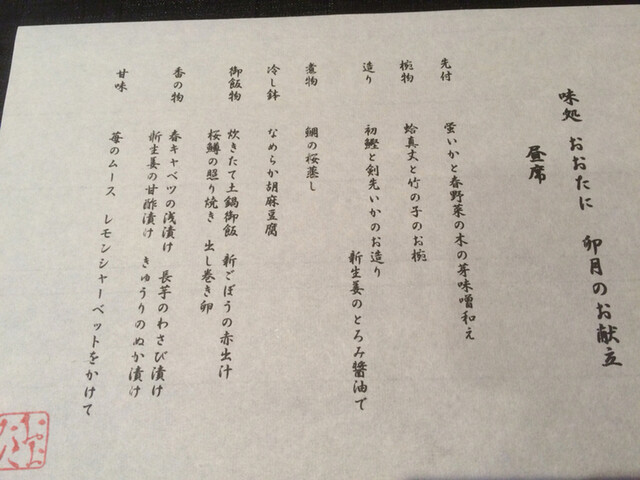 味処 おおたに 卯月のお献立
昼席
先付 蛍いかと春野菜の木の芽味噌和え
椀物 蛤真丈と竹の子のお椀
造り 初鰹と剣先いかのお造り
新生姜のとろみ醤油で
煮物 鯛の桜蒸し
冷し鉢 なめらか胡麻豆腐
御飯物 炊きたて土鍋御飯 新ごぼうの赤出汁
桜鱒の照り焼き 出し巻き卵
香の物 春キャベツの浅漬け 長芋のわさび漬け
新生姜の甘酢漬け きゅうりのぬか漬け
甘味 苺のムース レモンシャーベットをかけて